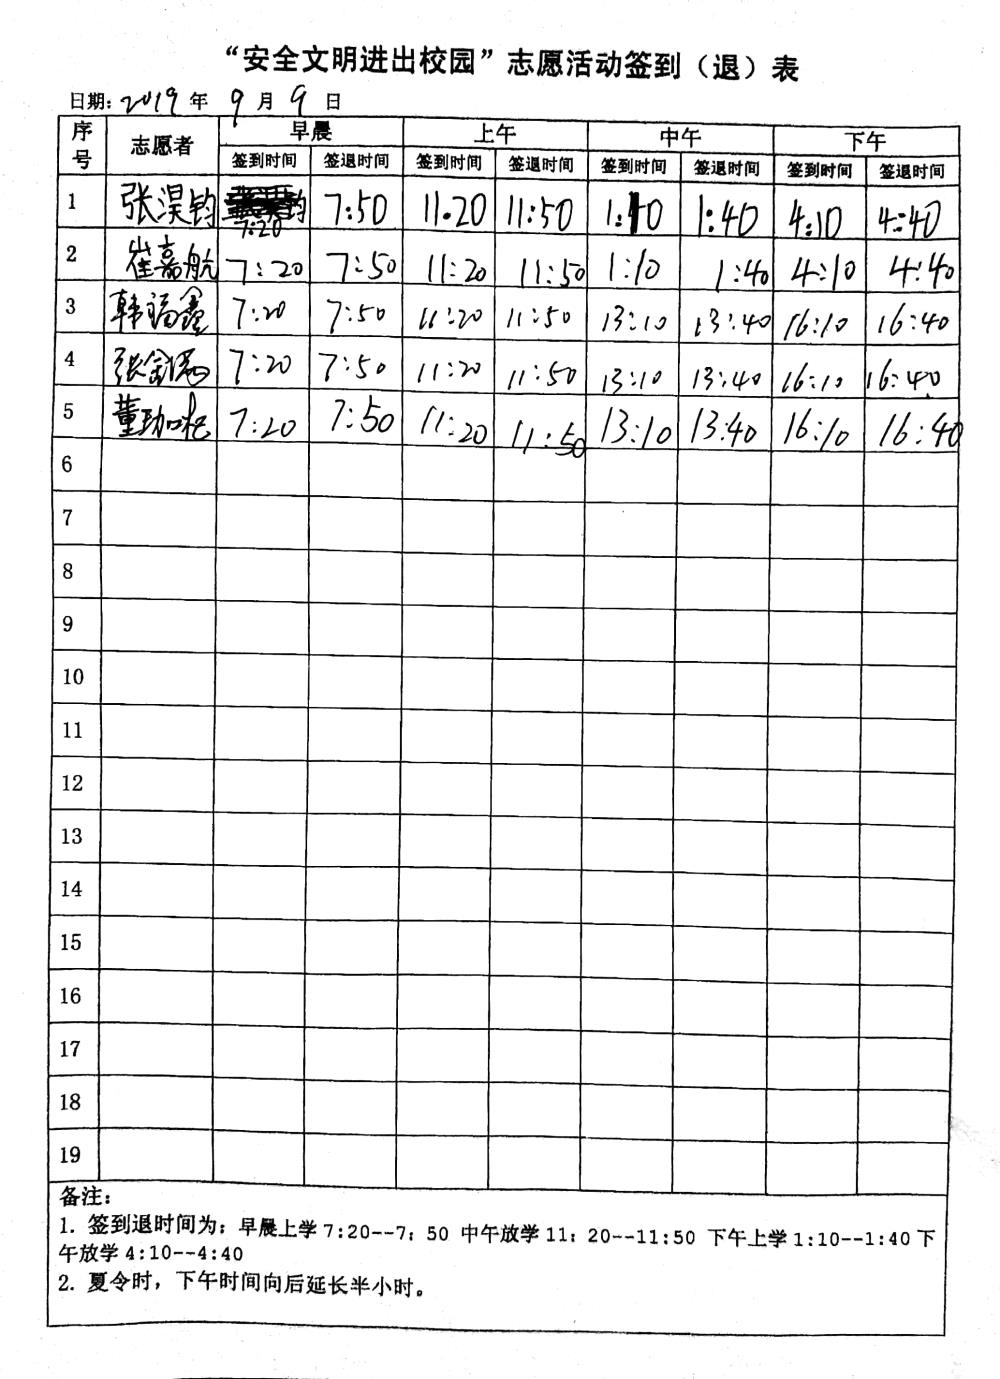 “安全文明进出校园”志愿活动签到（退）表
日期: 2019 年 9 月 9 日
序号 志愿者 早晨 上午 中午 下午
签到时间 签退时间 签到时间 签退时间 签到时间 签退时间 签到时间 签退时间
1 张淏钧 7:20 7:50 11:20 11:50 1:10 1:40 4:10 4:40
2 崔嘉航 7:20 7:50 11:20 11:50 1:10 1:40 4:10 4:40
3 韩福鑫 7:20 7:50 11:20 11:50 13:10 13:40 16:10 16:40
4 张 7:20 7:50 11:20 11:50 13:10 13:40 16:10 16:40
5 董 7:20 7:50 11:20 11:50 13:10 13:40 16:10 16:40
6
7
8
9
10
11
12
13
14
15
16
17
18
19
备注:
1. 签到退时间为：早晨上学 7:20--7：50 中午放学 11：20--11:50 下午上学 1:10--1:40 下
午放学 4:10--4:40
2. 夏令时，下午时间向后延长半小时。